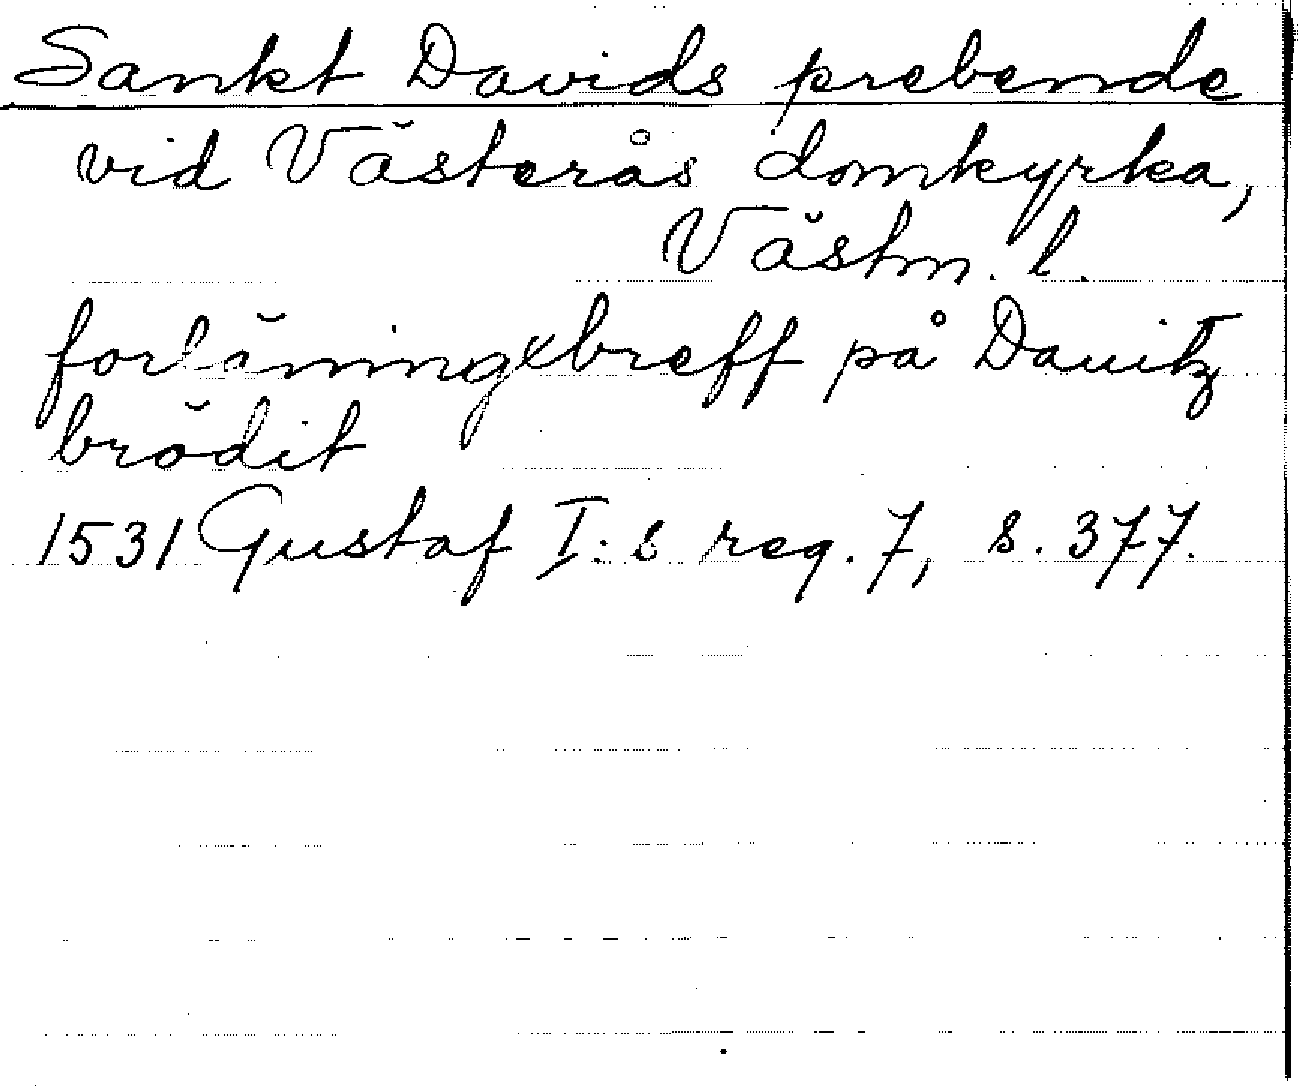 Sankt Davids prebende
vid Västerås domkyrka,
Västm. l.
forläningxbreff på Dauitz
brödit
1531 Gustaf I:s reg. 7, s. 377.